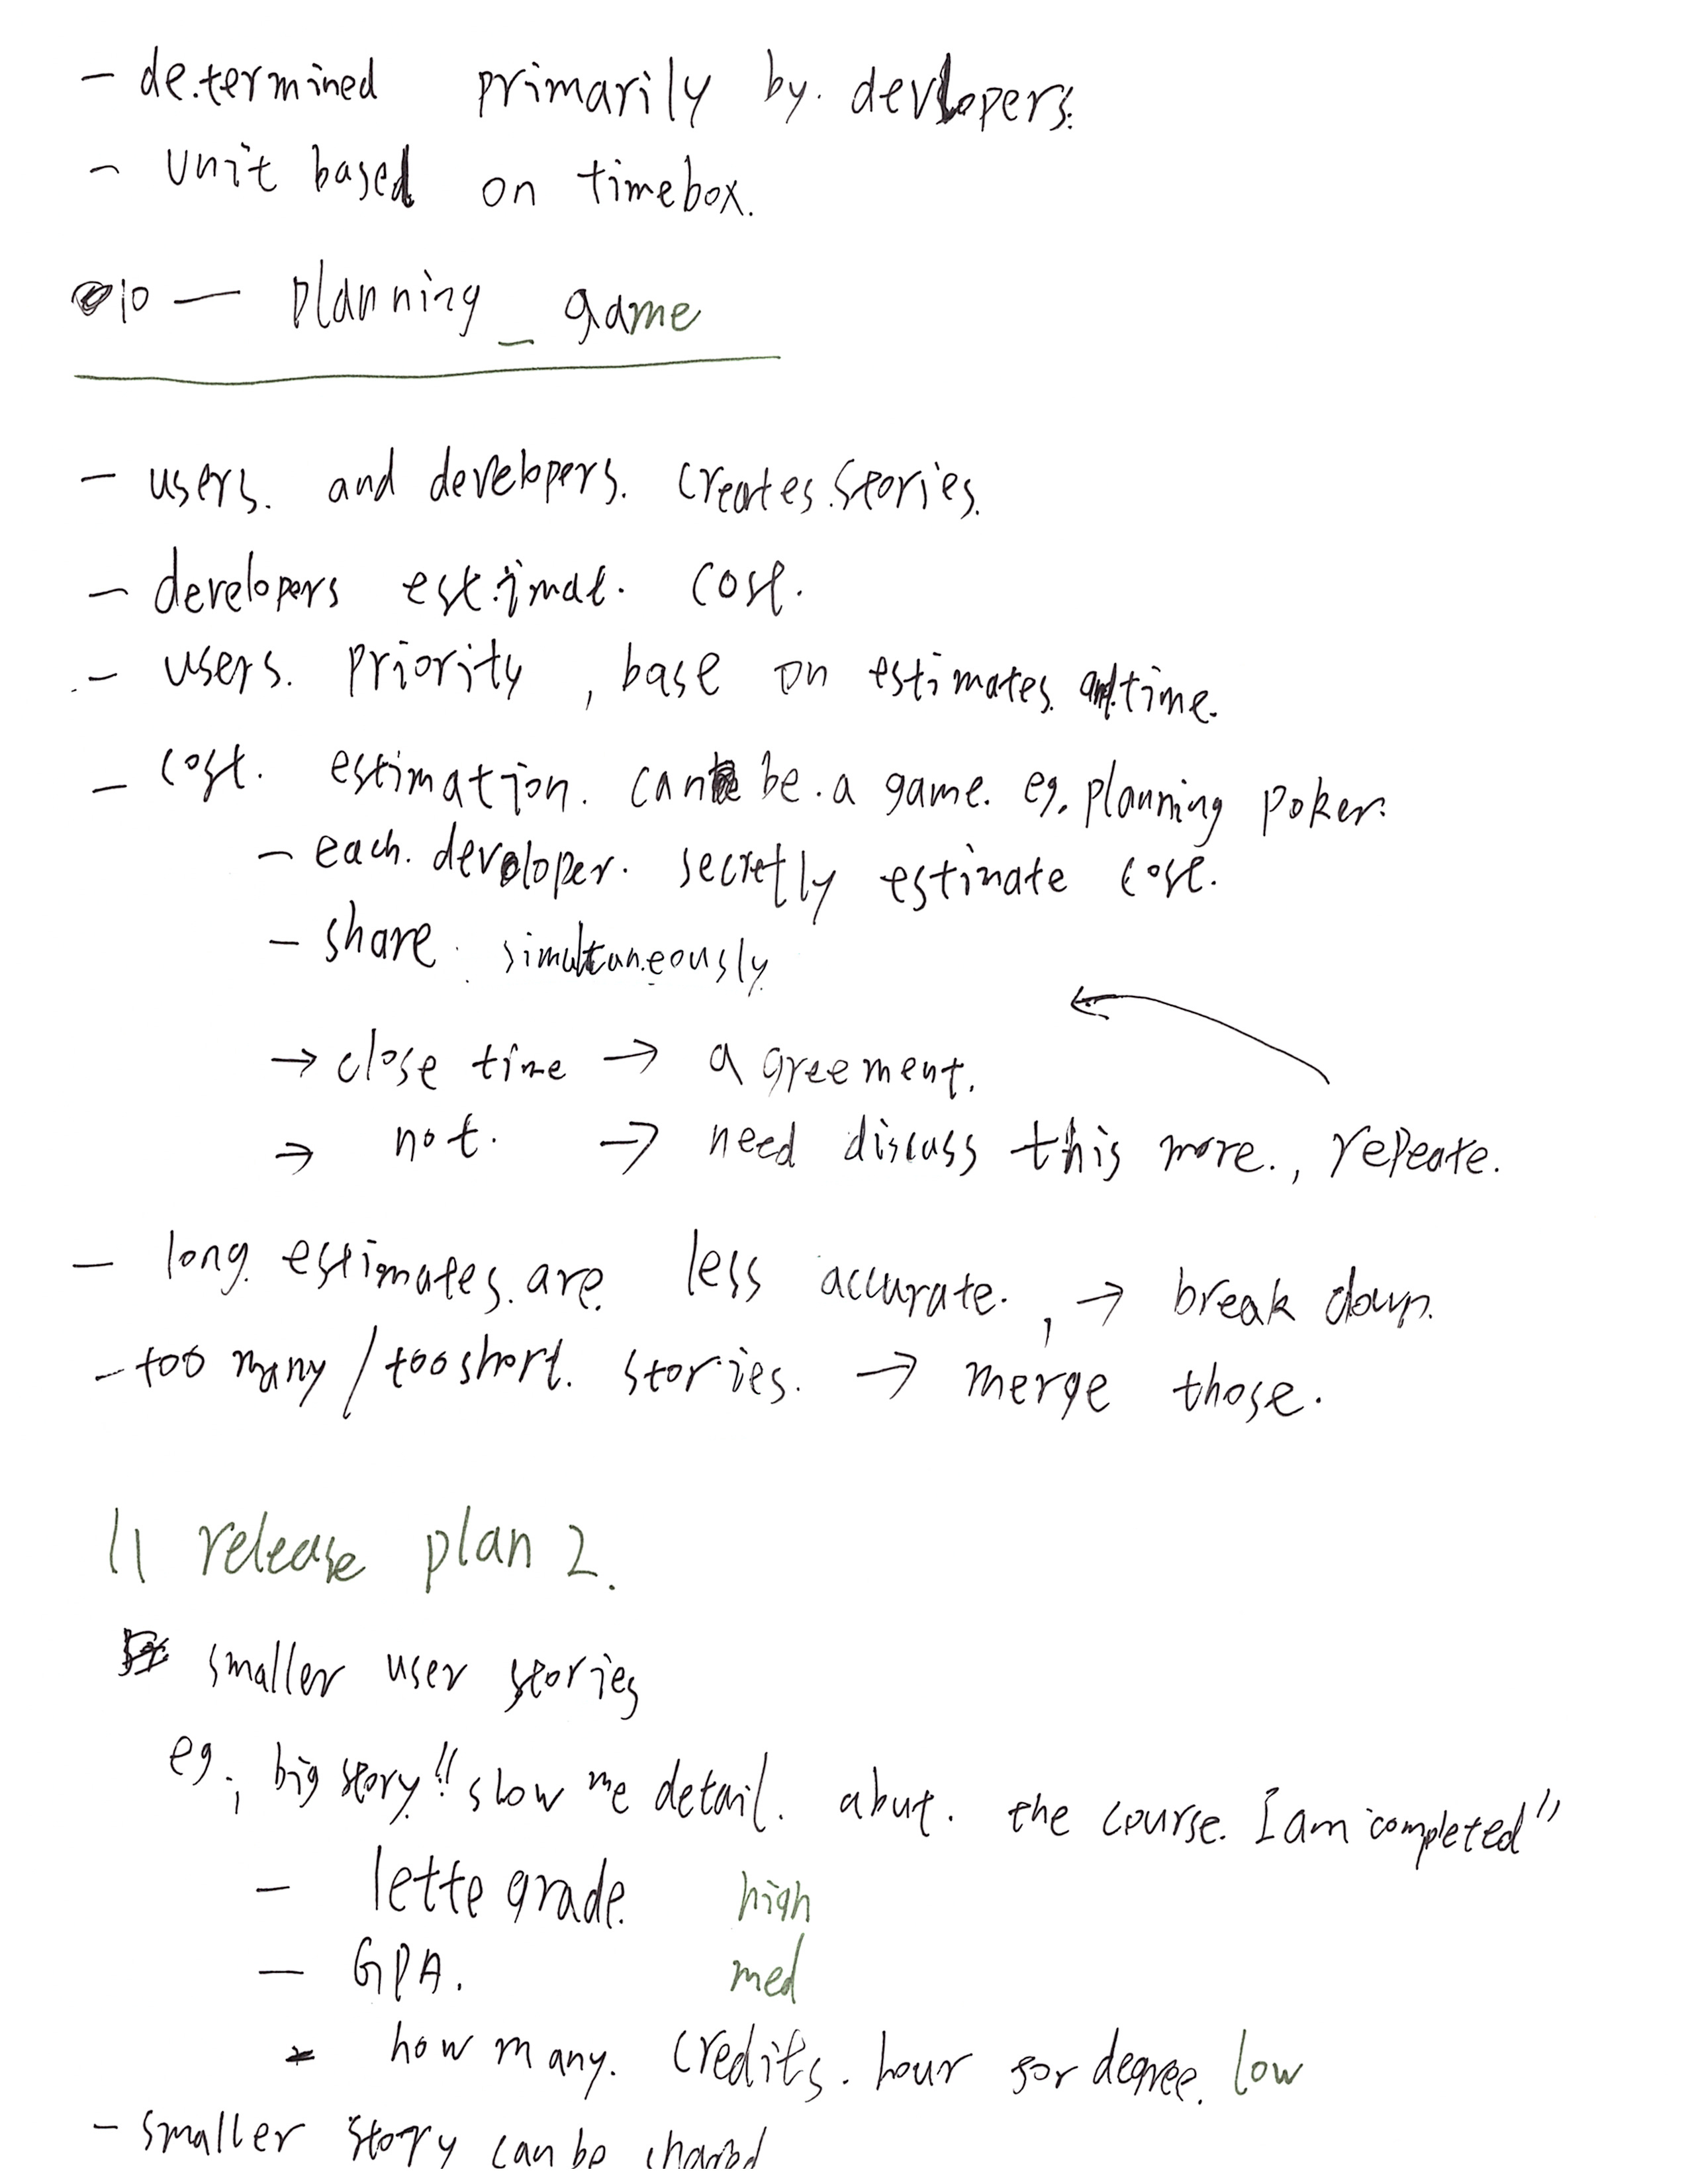 - determined primarily by. devlopers.
- unit based on timebox.
10 — planning _ game
- users. and developers. creates. stories.
- developers estimat. cost.
- users. priority, base on estimates and time.
- cost. estimation. can be. a game. eg. planning poker.
- each. developer. secretly estimate cost.
- share. simultaneously
→ close time → agreement.
→ not. → need discuss this more., repeate.
- long estimates. are. less accurate., → break down.
- too many / too short. stories. → merge those.
11 release plan 2.
smaller user stories
eg; big story "show me detail. abut. the course. I am completed"
- lette grade. high
- GPA. med
- how many. credits. hour for degree. low
- smaller story can be shared